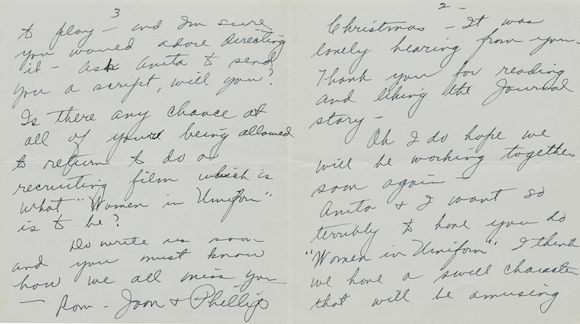 2 -
Christmas - It was
lovely hearing from you -
Thank you for reading
and liking the Journal
story -
Oh I do hope we
will be working together
soon again -
Anita & I want so
terribly to have you do
"Women in Uniform". I think
we have a swell character
that will be amusing
3
to play - and I'm sure
you would adore directing
it - Ask Anita to send
you a script, will you?
Is there any chance at
all of your being allowed
to return to do a
recruiting film which is
what "Women in Uniform"
is to be?
Do write us soon
and you must know
how we all miss you
- Joan & Phillip